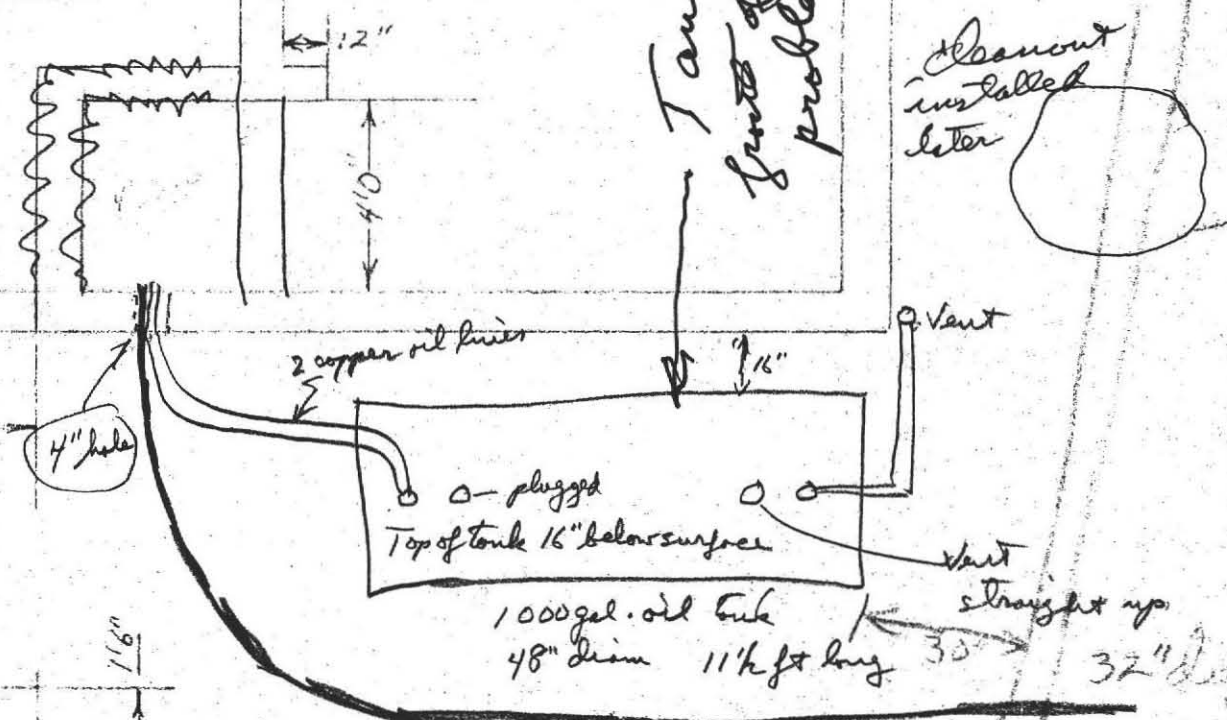 12"
4'0"
cleanout
installed
later
Vent
2 copper oil lines
16"
4" hole
plugged
Top of tank 16" below surface
Vent
straight up
1000 gal. oil tank
48" diam 11½ ft long
30
32"
1'6"